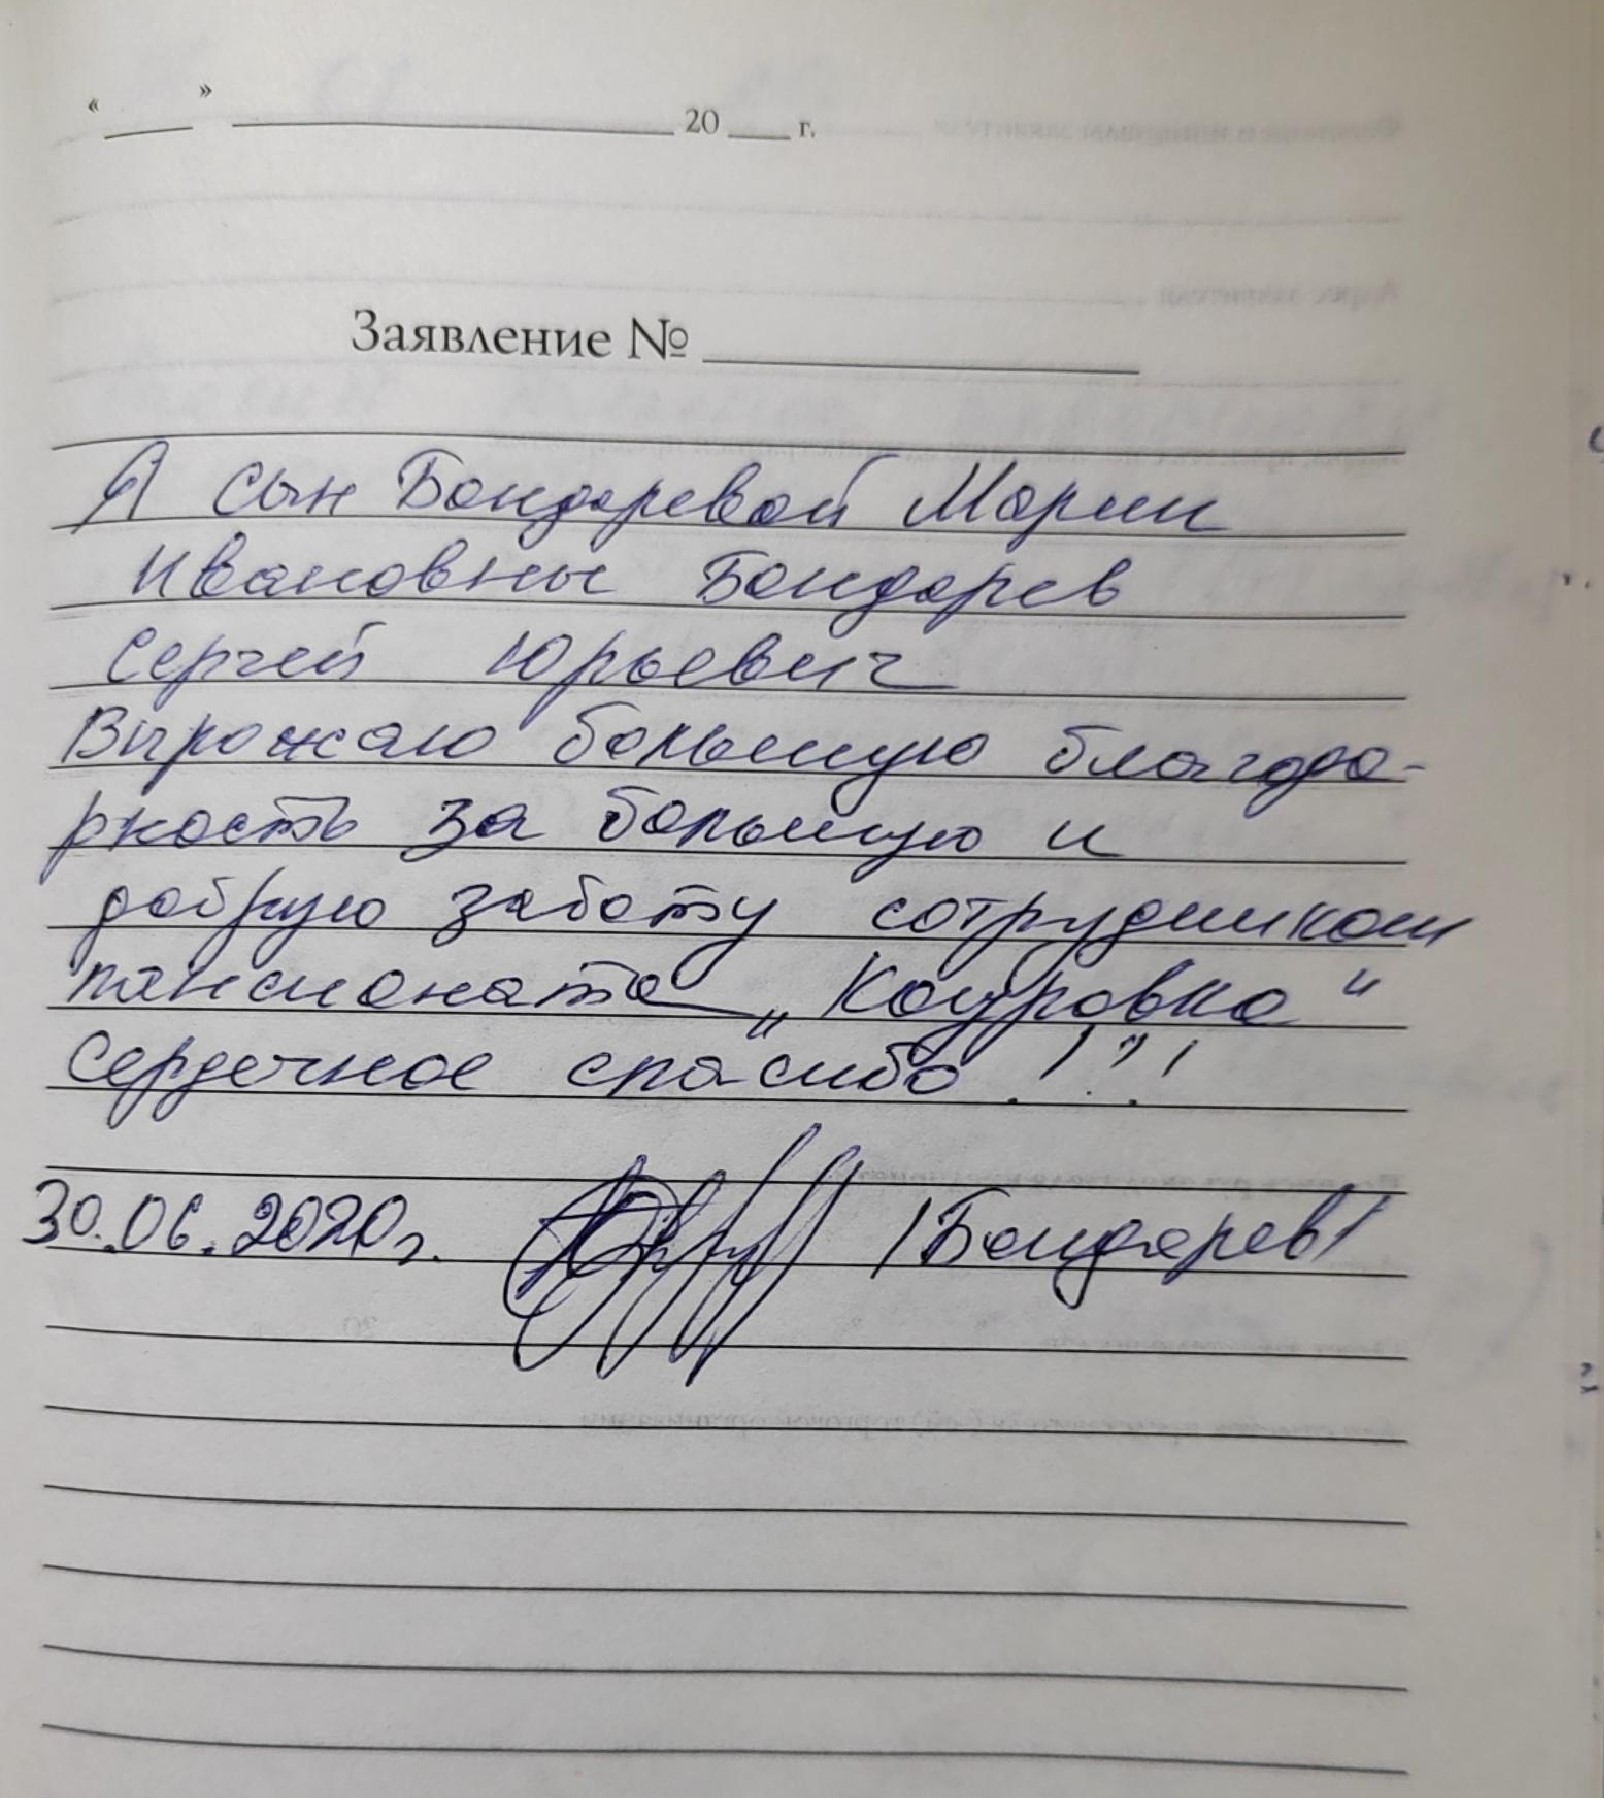 « » 20 г.
Заявление №
Я сын Бондаревой Марии
Ивановны Бондарев
Сергей Юрьевич
Выражаю большую благода-
рность за большую и
добрую заботу сотрудникам
пансионата „Коуровка“
Сердечное спасибо!!!
30.06.2020г. /Бондарев/